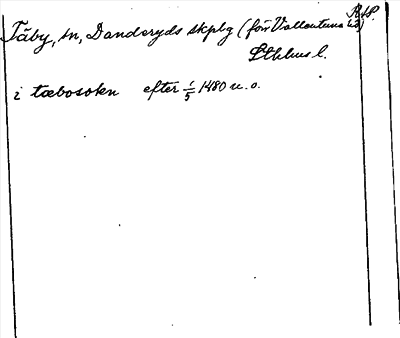 Täby, sn, Danderyds skplg (förr Vallentuna hd)
Sthlms l.
i tæbosokn efter 1/5 1480 u. o.